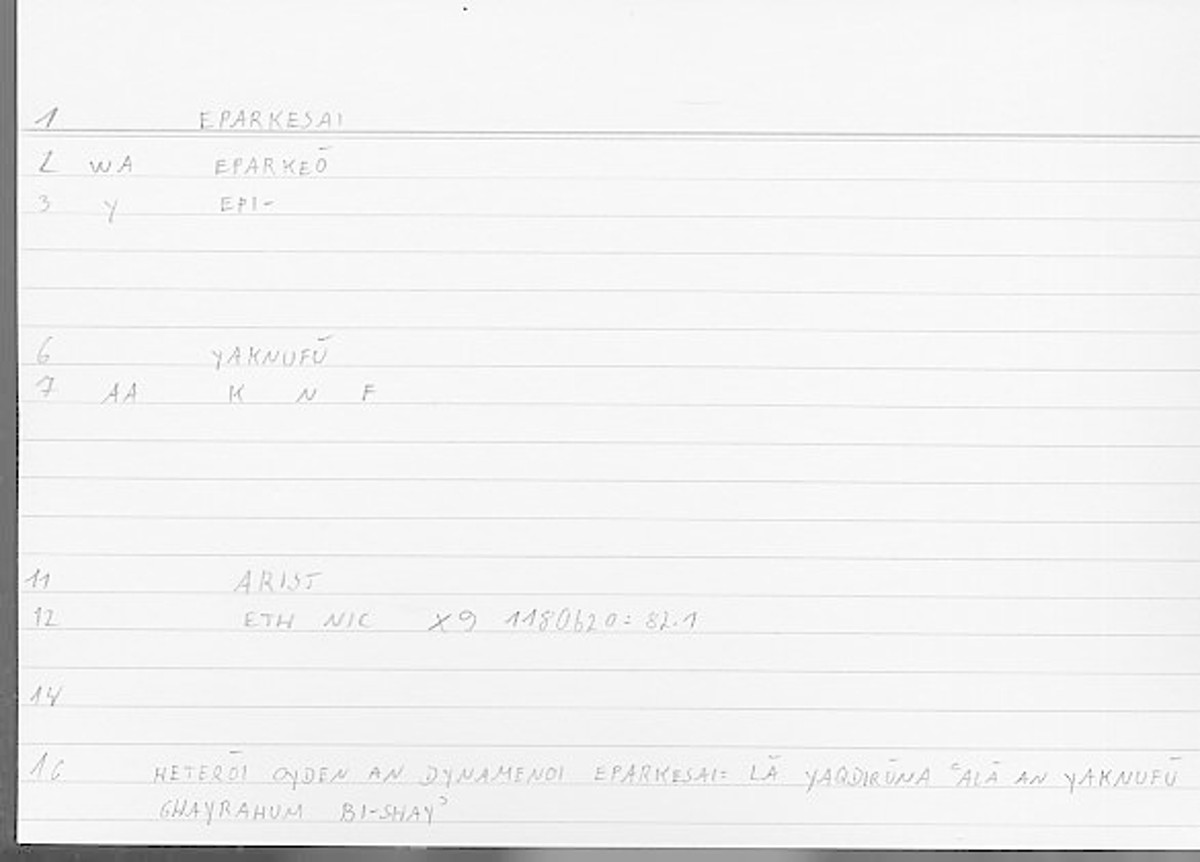 1 EPARKESAI
2 WA EPARKEŌ
3 Y EPI-
6 YAKNUFŪ
7 AA K N F
11 ARIST
12 ETH NIC X9 1180b20: 82.1
14
16 HETERŌI OYDEN AN DYNAMENOI EPARKESAI: LĀ YAQDIRŪNA ʿALĀ AN YAKNUFŪ
GHAYRAHUM BI-SHAYʾ